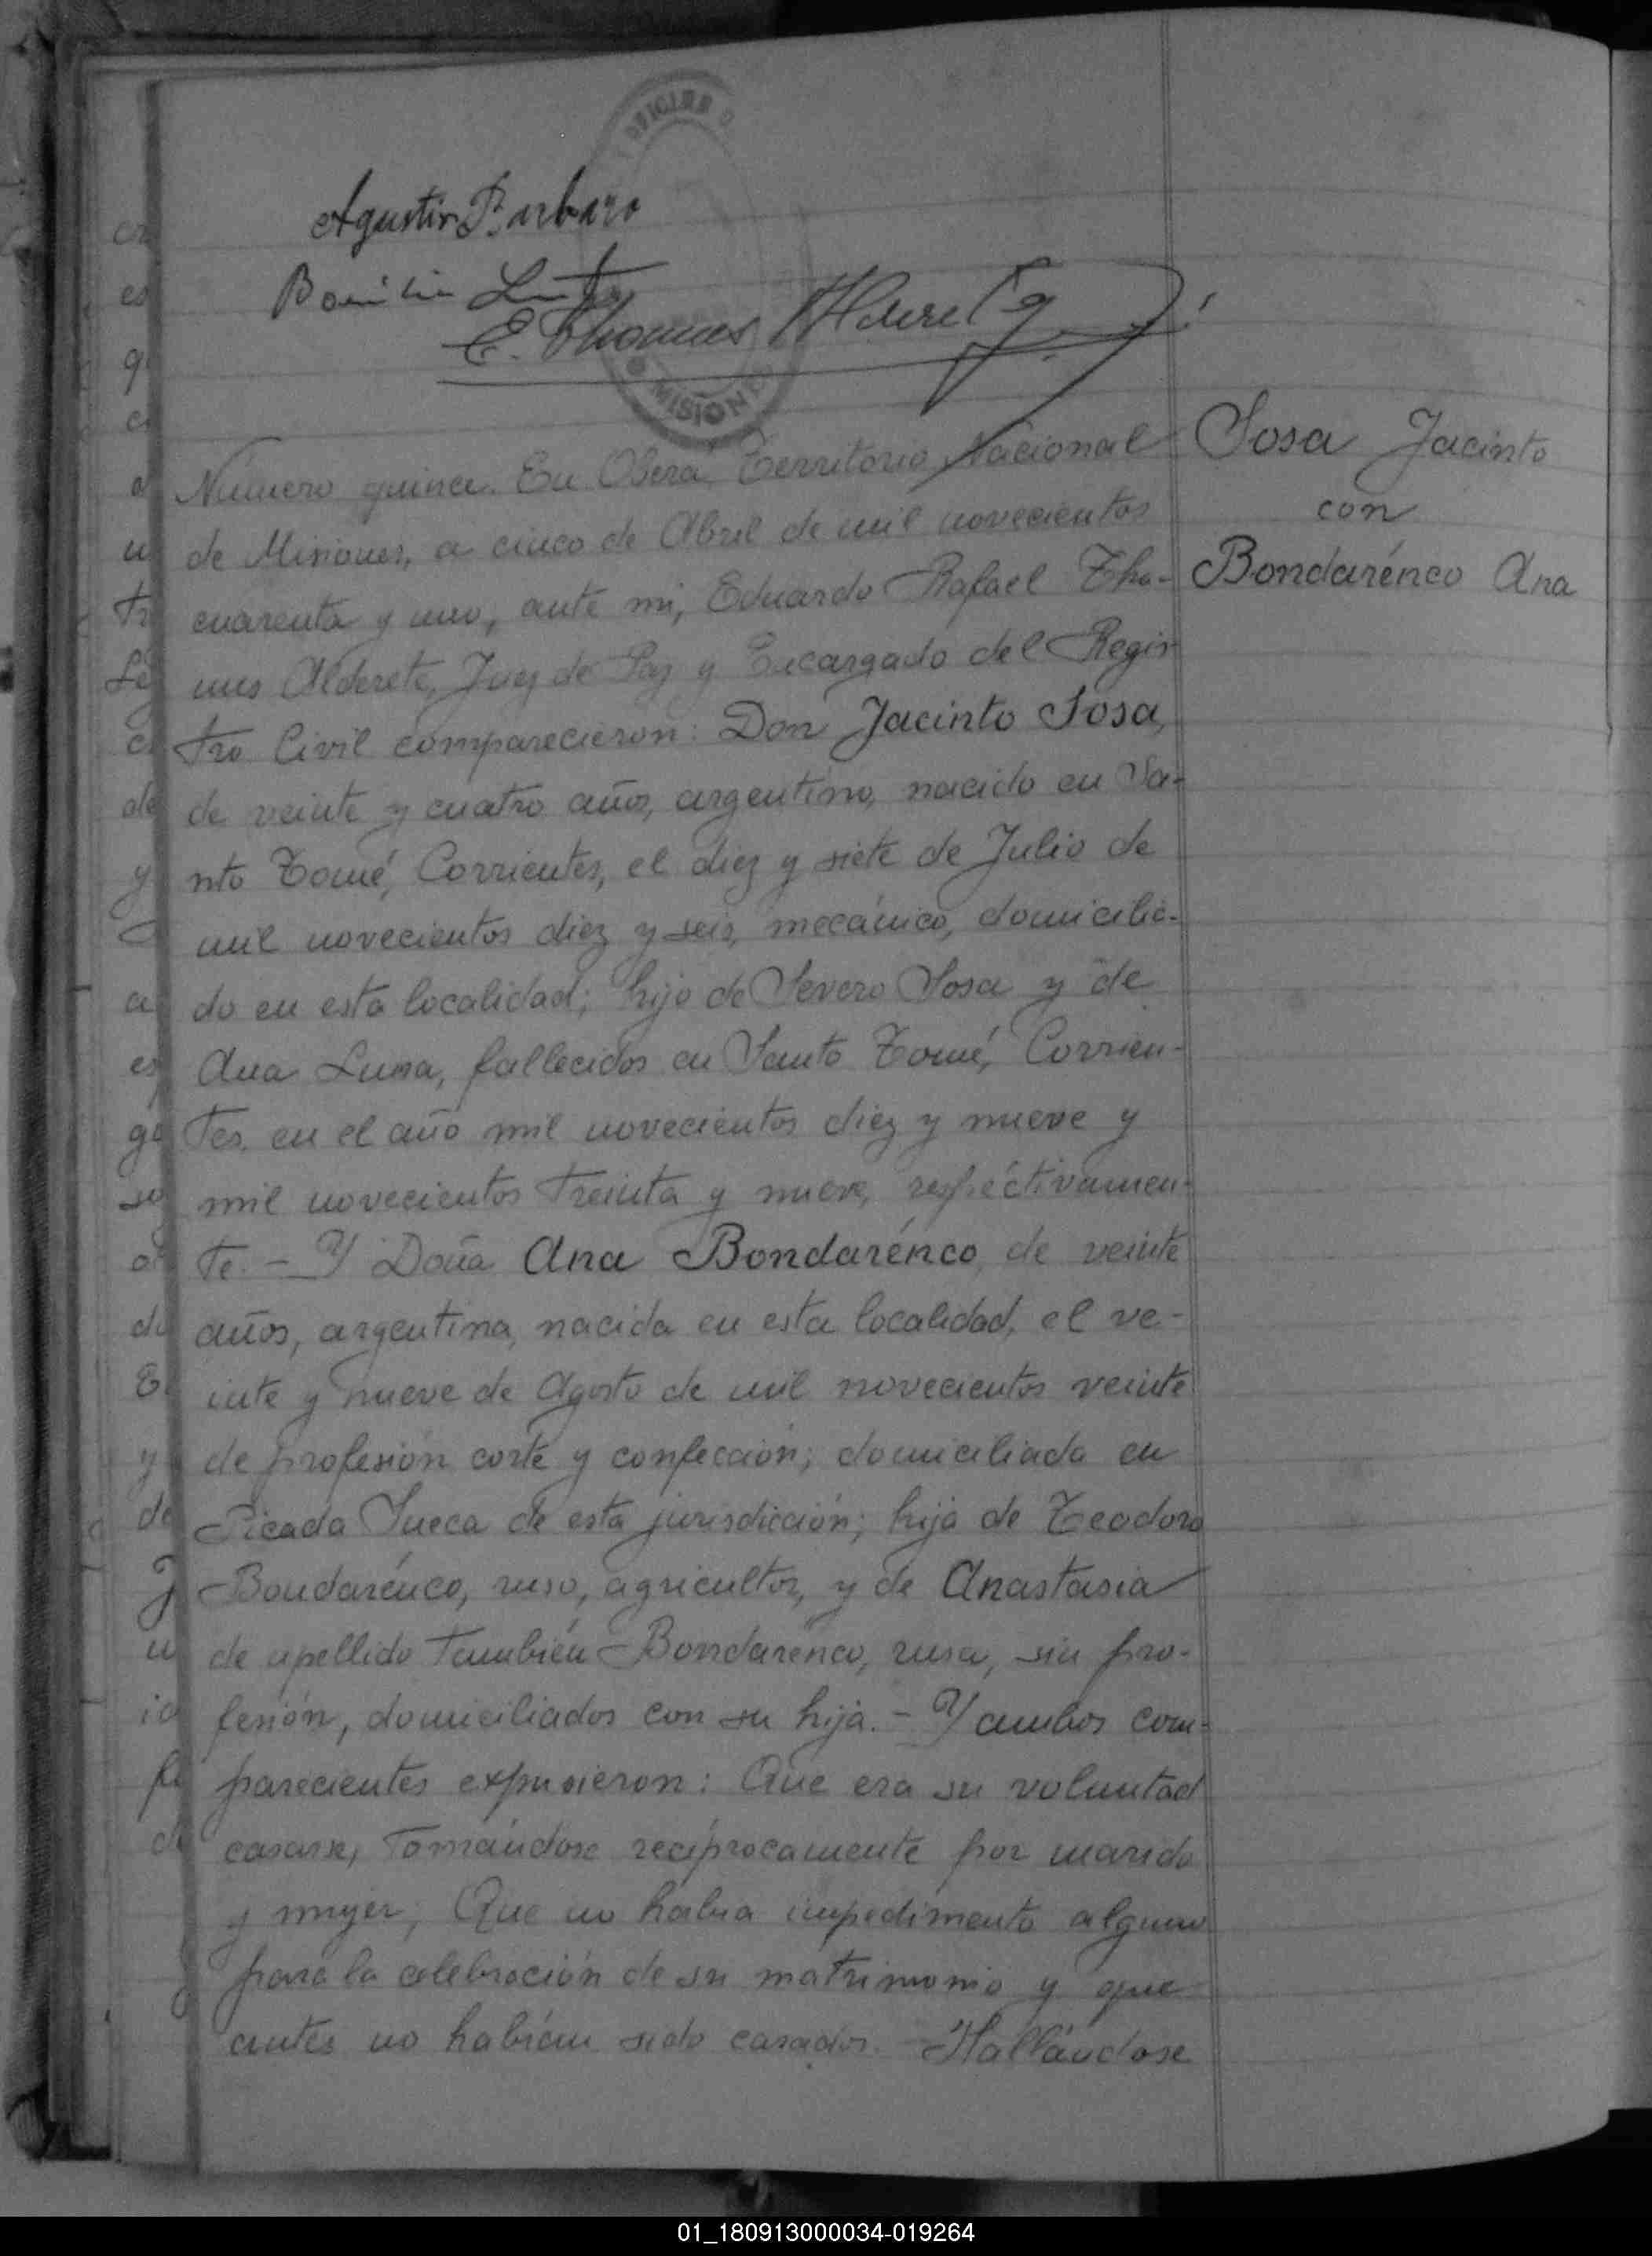 OFICINA
Agustin Barbaro
E. Thomas Alderete
MISIONES
Sosa Jacinto
con
Bondarénco Ana
Número quince. En Oberá, Territorio Nacional
de Misiones, a cinco de Abril de mil novecientos
cuarenta y uno, ante mi, Eduardo Rafael Tho-
mas Alderete, Juez de Paz y Encargado del Regis-
tro Civil comparecieron: Don Jacinto Sosa,
de veinte y cuatro años, argentino, nacido en Sa-
nto Tomé, Corrientes, el diez y siete de Julio de
mil novecientos diez y seis, mecánico, domicilia-
do en esta localidad; hijo de Severo Sosa y de
Ana Luna, fallecidos en Santo Tomé, Corrien-
tes, en el año mil novecientos diez y nueve y
mil novecientos treinta y nueve, respéctivamen-
te. - Y Doña Ana Bondarénco, de veinte
años, argentina, nacida en esta localidad, el ve-
inte y nueve de Agosto de mil novecientos veinte
de profesión corte y confección; domiciliada en
Picada Sueca de esta jurisdicción; hija de Teodoro
Bondarénco, ruso, agricultor, y de Anastasia
de apellido también Bondarénco, rusa, sin pro-
fesión, domiciliados con su hija. - Y ambos com-
parecientes expusieron: Que era su voluntad
casarse, tomándose recíprocamente por marido
y mujer; Que no habia impedimento alguno
para la celebración de su matrimonio y que
antes no habían sido casados. Hallándose
01_180913000034-019264